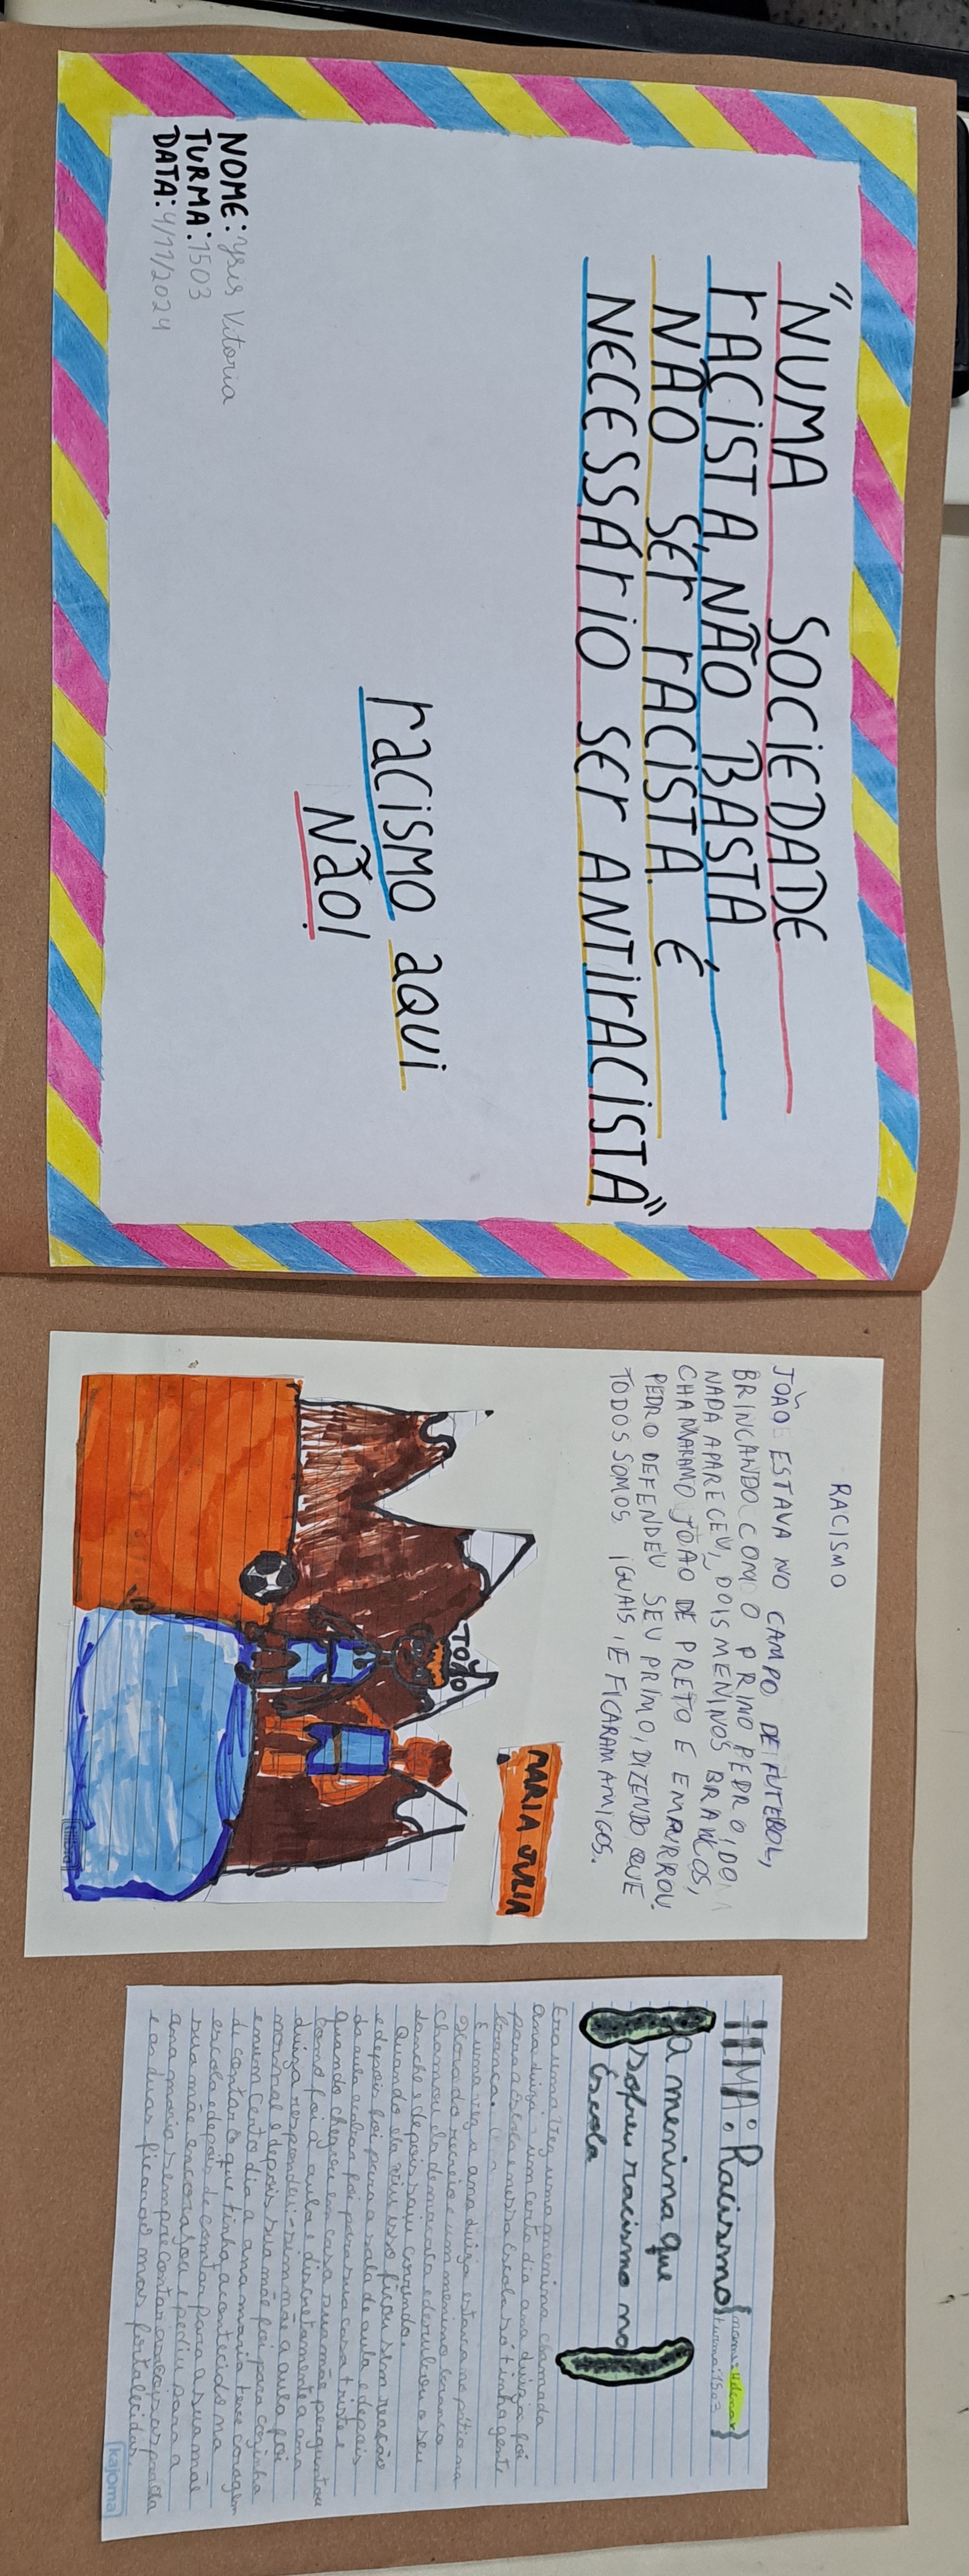 "NUMA SOCIEDADE
rACiSTA, NÃO BASTA
NÃO SEr rACiSTA É
NECESSÁriO SEr ANTirACiSTA"
racismo aqui
Não!
NOME: Ysis Vitoria
TURMA: 1503
DATA: 4/11/2024
RACISMO
JOÃO ESTAVA NO CAMPO DE FUTEBOL,
BRINCANDO COM O PRIMO PEDRO, DO
NADA APARECEU, DOIS MENINOS BRANCOS,
CHAMARAMO JOÃO DE PRETO E EMPURROU.
PEDRO DEFENDEU SEU PRIMO, DIZENDO QUE
TODOS SOMOS IGUAIS, E FICARAM AMIGOS.
MARIA JULIA
TEMA: Racismo
nome: Helena
turma: 1503
A menina que
sofreu racismo na
Escola
Era uma vez uma menina chamada
ana luiza, um certo dia ana luiza foi
para a escola e nessa escola só tinha gente
branca.
E uma vez a ana luiza estava no pátio na
Hora do recreio e um menino branco
chamou ela de macaca e derrubou o seu
lanche e depois saiu correndo.
Quando ela viu isso ficou sem reação
e depois foi para a sala de aula e depois
da aula acabar foi para sua casa triste e
quando chegou em casa sua mãe perguntou
como foi a aula e discretamente a ana
luiza respondeu: - sim mãe a aula foi
normal e depois sua mãe foi para cozinha
e num certo dia a ana maria teve coragem
de contar o que tinha acontecido na
escola e depois de contar para a sua mãe
sua mãe encorajou e pediu para a
ana maria sempre contar as coisas para ela
e as duas ficaram mas fortalecidas
kajoma